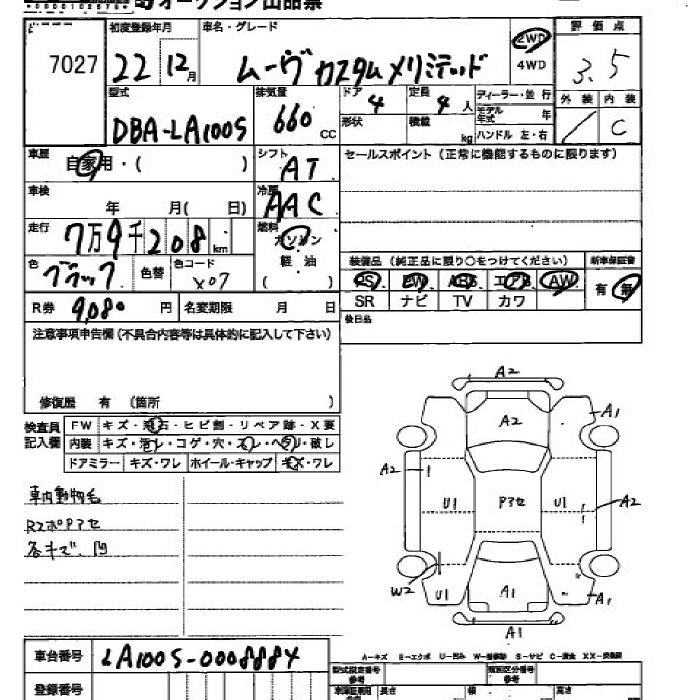 オークション出品票
7027
初度登録年月
22年 12月
車名・グレード
ムーヴ カスタムメリミテッド
2WD
4WD
評価点
3.5
外装 内装
C
型式
DBA-LA100S
排気量
660 cc
ドア 4
定員 4 人
形状
積載 kg
ディーラー・並行
モデル年式 年
ハンドル 左・右
車歴
自家用・( )
シフト
AT
セールスポイント (正常に機能するものに限ります)
車検
年 月( 日)
冷房
AAC
走行
7万9千208km
燃料
ガソリン
軽油
( )
色
ブラック
色替
色コード
X07
装備品 (純正品に限り○をつけてください)
新車保証書
PS PW ABS エアB AW
SR ナビ TV カワ
有・無
R券 9,080 円
名変期限 月 日
後日品
注意事項申告欄(不具合内容等は具体的に記入して下さい)
修復歴 有 (箇所 )
検査員記入欄
FW キズ・飛石・ヒビ割・リペア跡・X要
内装 キズ・汚レ・コゲ・穴・スレ・ヘタリ・破レ
ドアミラー キズ・ワレ ホイール・キャップ キズ・ワレ
車内動物毛
RスポPアセ
各キズ、凹
A2
A2
A1
A2
U1
Pアセ
U1
A2
W2
U1
A1
A1
A1
A-キズ E-エクボ U-凹み W-補修跡 S-サビ C-腐食 XX-交換済
車台番号
LA100S-0008884
登録番号
型式指定番号
参考
類別区分番号
参考
長さ
幅
高さ